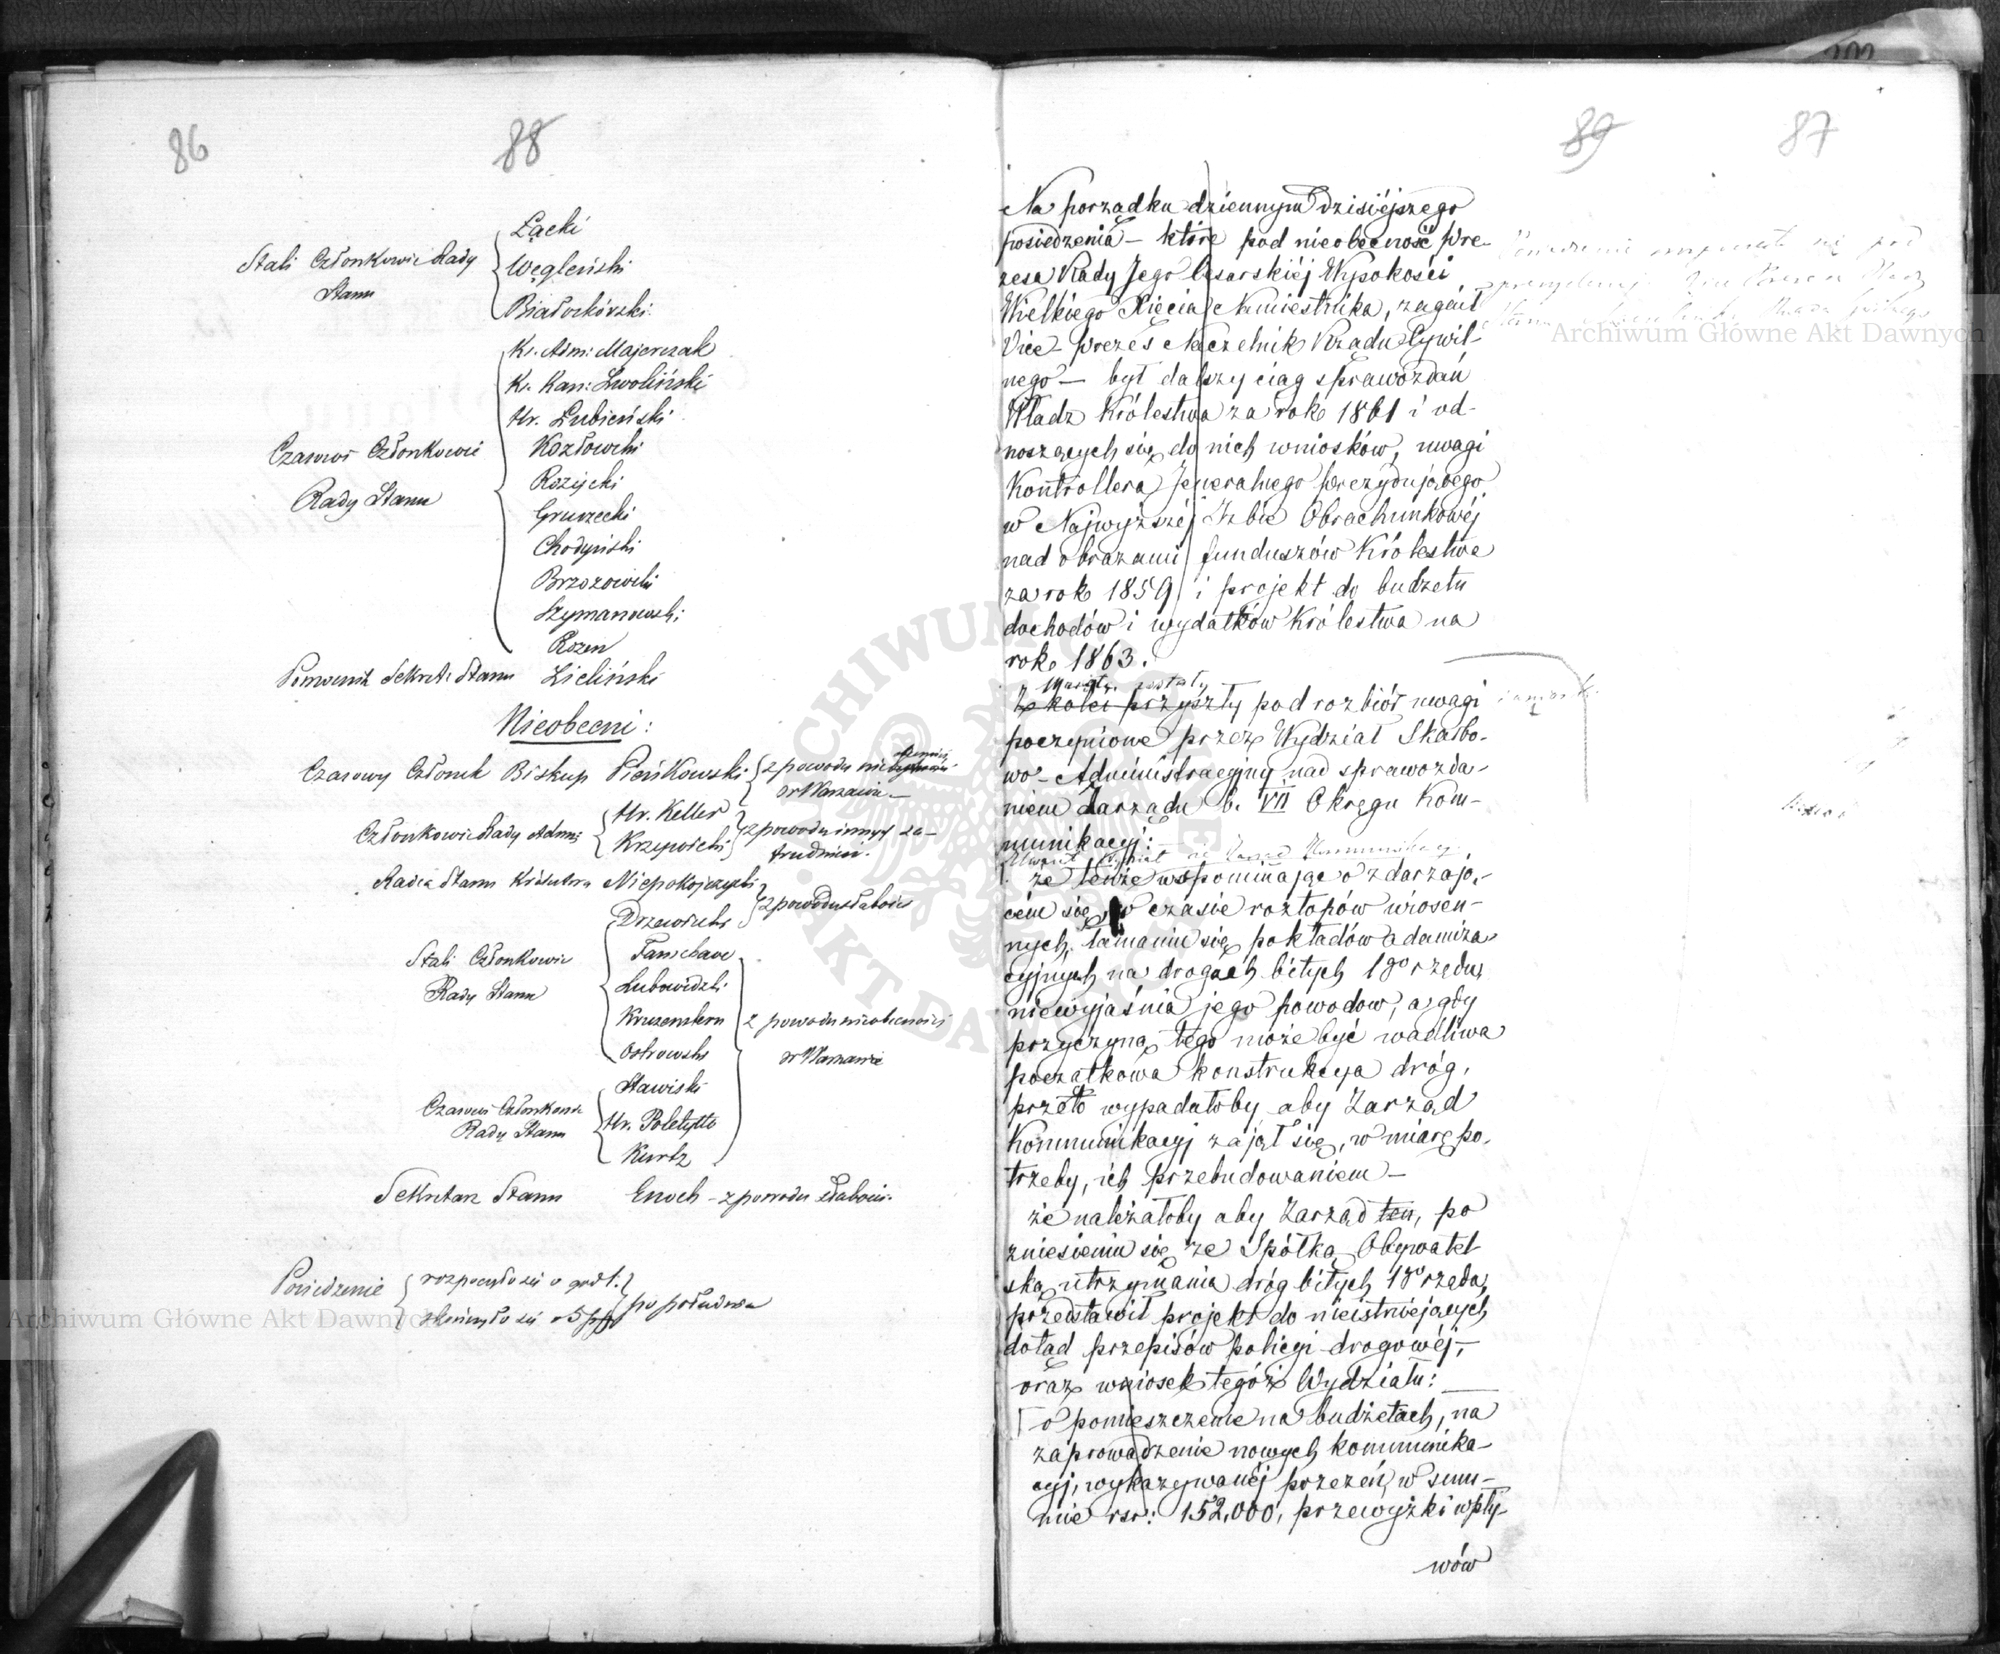 86
88
Stali Członkowie Rady
Stanu
Łącki
Węgleński
Białoskórski
Czasowi Członkowie
Rady Stanu
Ks. Adm: Majerczak
Ks. Kan: Zwoliński
Hr. Łubieński
Kozłowski
Rozycki
Gruszecki
Chodyński
Brzozowski
Szymanowski
Rozen
Pomocnik Sekret: Stanu Zieliński
Nieobecni:
Czasowy Członek Biskup Pieńkowski z powodu
w Warszawie
Członkowie Rady Adm:
Hr. Keller
Krzywicki
z powodu innych za-
trudnień.
Radca Stanu Niepokojczycki
z powodu słabości
Stali Członkowie
Rady Stanu
Drzewiecki
Fanshave
Lubowidzki
Kruzenstern
Ostrowski
z powodu nieobecności
w Warszawie
Czasowi Członkowie
Rady Stanu
Stawiski
Hr. Poletyłło
Kurtz
Sekretarz Stanu Enoch – z powodu słabości.
Posiedzenie
rozpoczęło się o godz. 1.
skończyło się o 5
po południu
89
87
Na porządku dziennym dzisiejszego
posiedzenia – które pod nieobecność Pre-
zesa Rady Jego Cesarskiéj Wysokości
Wielkiego Xięcia Namiestnika, zagaił
Vice-Prezes Naczelnik Rządu Cywil-
nego – był dalszy ciąg sprawozdań
Władz Królestwa za rok 1861 i od-
noszących się do nich wniosków, uwagi
Kontrollera Jeneralnego Prezydującego
w Najwyższéj Izbie Obrachunkowéj
nad obrazami funduszów Królestwa
za rok 1859 i projekt do budżetu
dochodów i wydatków Królestwa na
rok 1863.
zostały
Z kolei przyszły pod rozbiór uwagi
poczynione przez Wydział Skarbo-
wo-Administracyjny nad sprawozda-
niem Zarządu b. VII Okręgu Kom-
munikacyj:
że tenże wspominając o zdarzają-
cém się, w czasie roztopów wiosen-
nych, łamaniu się pokładów adamiza-
cyjnych na drogach bitych 1go rzędu,
niewyjaśnia jego powodów, a gdy
przyczyną tego może być wadliwa
początkowa konstrukcya dróg,
przeto wypadałoby aby Zarząd
Kommunikacyj zajął się, w miarę po-
trzeby, ich przebudowaniem –
że należałoby aby Zarząd ten, po
zniesieniu się ze Spółką Obywatel
ską utrzymania dróg bitych 1go rzędu,
przedstawił projekt do nieistniejących
dotąd przepisów policyi drogowéj, –
oraz wniosek tegóż Wydziału:
o pomieszczenie na budżetach, na
zaprowadzenie nowych kommunika-
cyj, wykazywanéj przezeń, w sum-
mie rsr: 152,000, przewyżki wpły-
wów
Archiwum Główne Akt Dawnych
Archiwum Główne Akt Dawnych
ARCHIWUM GŁÓWNE AKT DAWNYCH